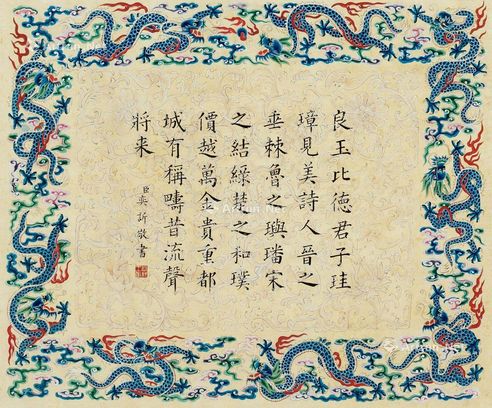 良玉比德君子珪
璋見美詩人晉之
垂棘魯之璵璠宋
之結綠楚之和璞
價越萬金貴重都
城有稱疇昔流聲
將来
臣奕訢敬書